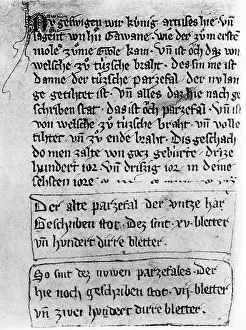 NV geswigen wir kúnig artuses hie vn̄
sagent vō hn̄ Gawane · wie der zům ersten
mole zůme Grole kam · vn̄ ist och daz von
welsche zů túzsche braht · des sin me ist
danne der túzsche parzefal · der nv lan
ge getihtet ist · vn̄ alles daz hie nach ge
schriben stat · das ist och parzefal · vn̄ ist
von welsche zů túzsche braht · vn̄ volle
tihtet · vn̄ zů ende braht · Dis geschach
do men zalte von gocz gebúrte · drize
hundert ior · vn̄ drizig ior · in deme
sehsten iore
Der alte parzefal der vntze har
Geschriben stot · dez sint · xv · bletter
vn̄ hundert dirre bletter ·
So sint dez núwen parzefales · der
hie noch geschriben stot · vij · bletter
vn̄ zwei hundert dirre bletter ·